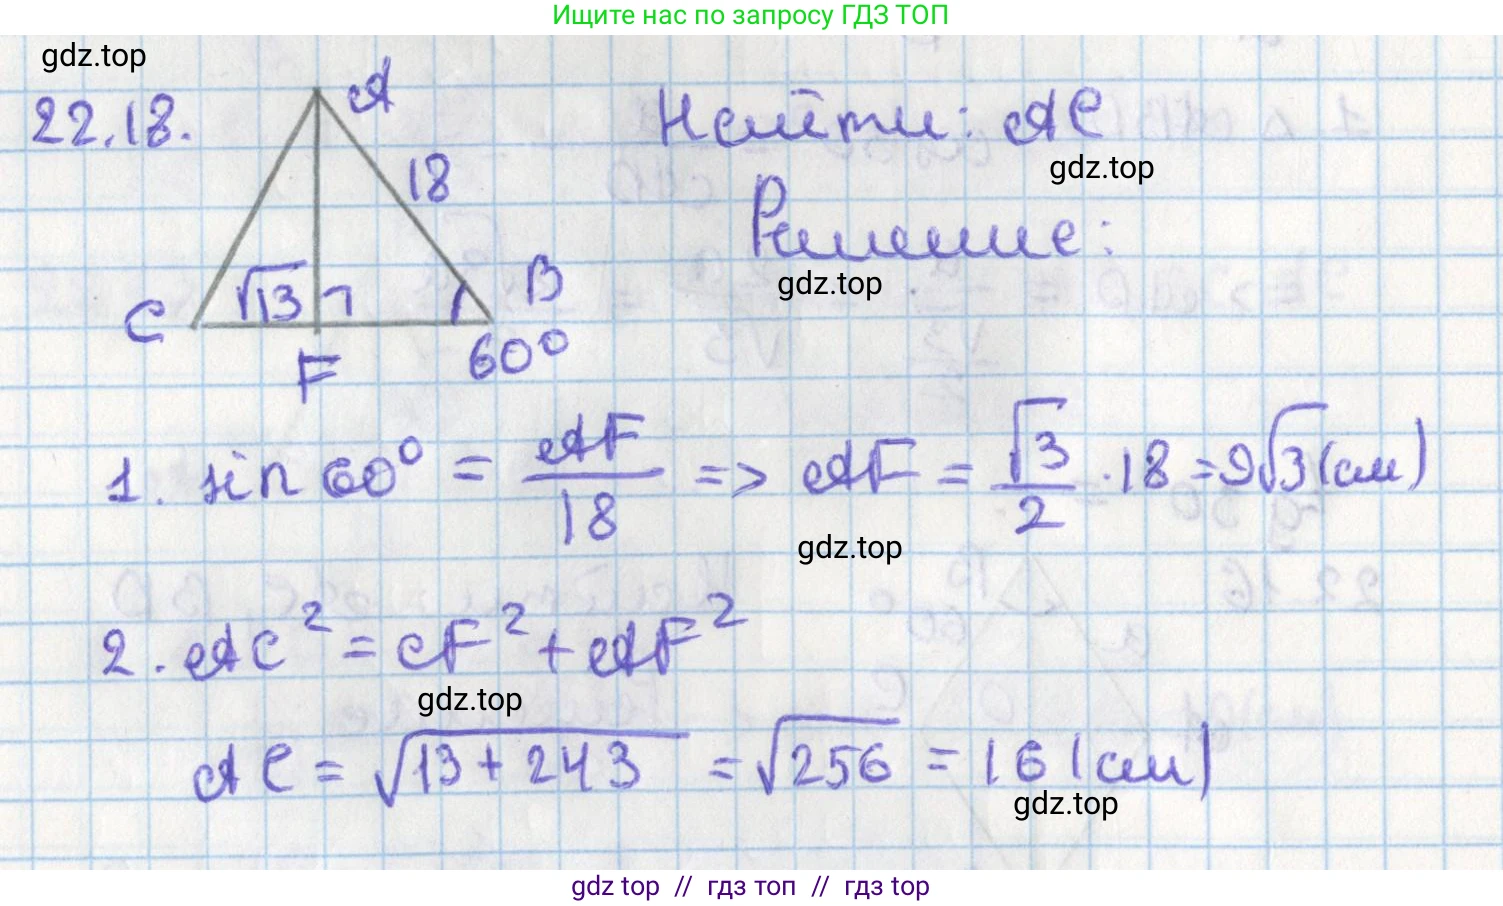 Ищите нас по запросу ГДЗ ТОП
gdz.top
22.18.
A
18
Найти: AC
gdz.top
Решение:
gdz.top
C
√13
B
F
60°
1. sin 60° = AF/18 => AF = √3/2 · 18 = 9√3 (см)
gdz.top
2. AC² = CF² + AF²
gdz.top
AC = √13 + 243 = √256 = 16 (см)
gdz.top
gdz top // гдз топ // гдз top